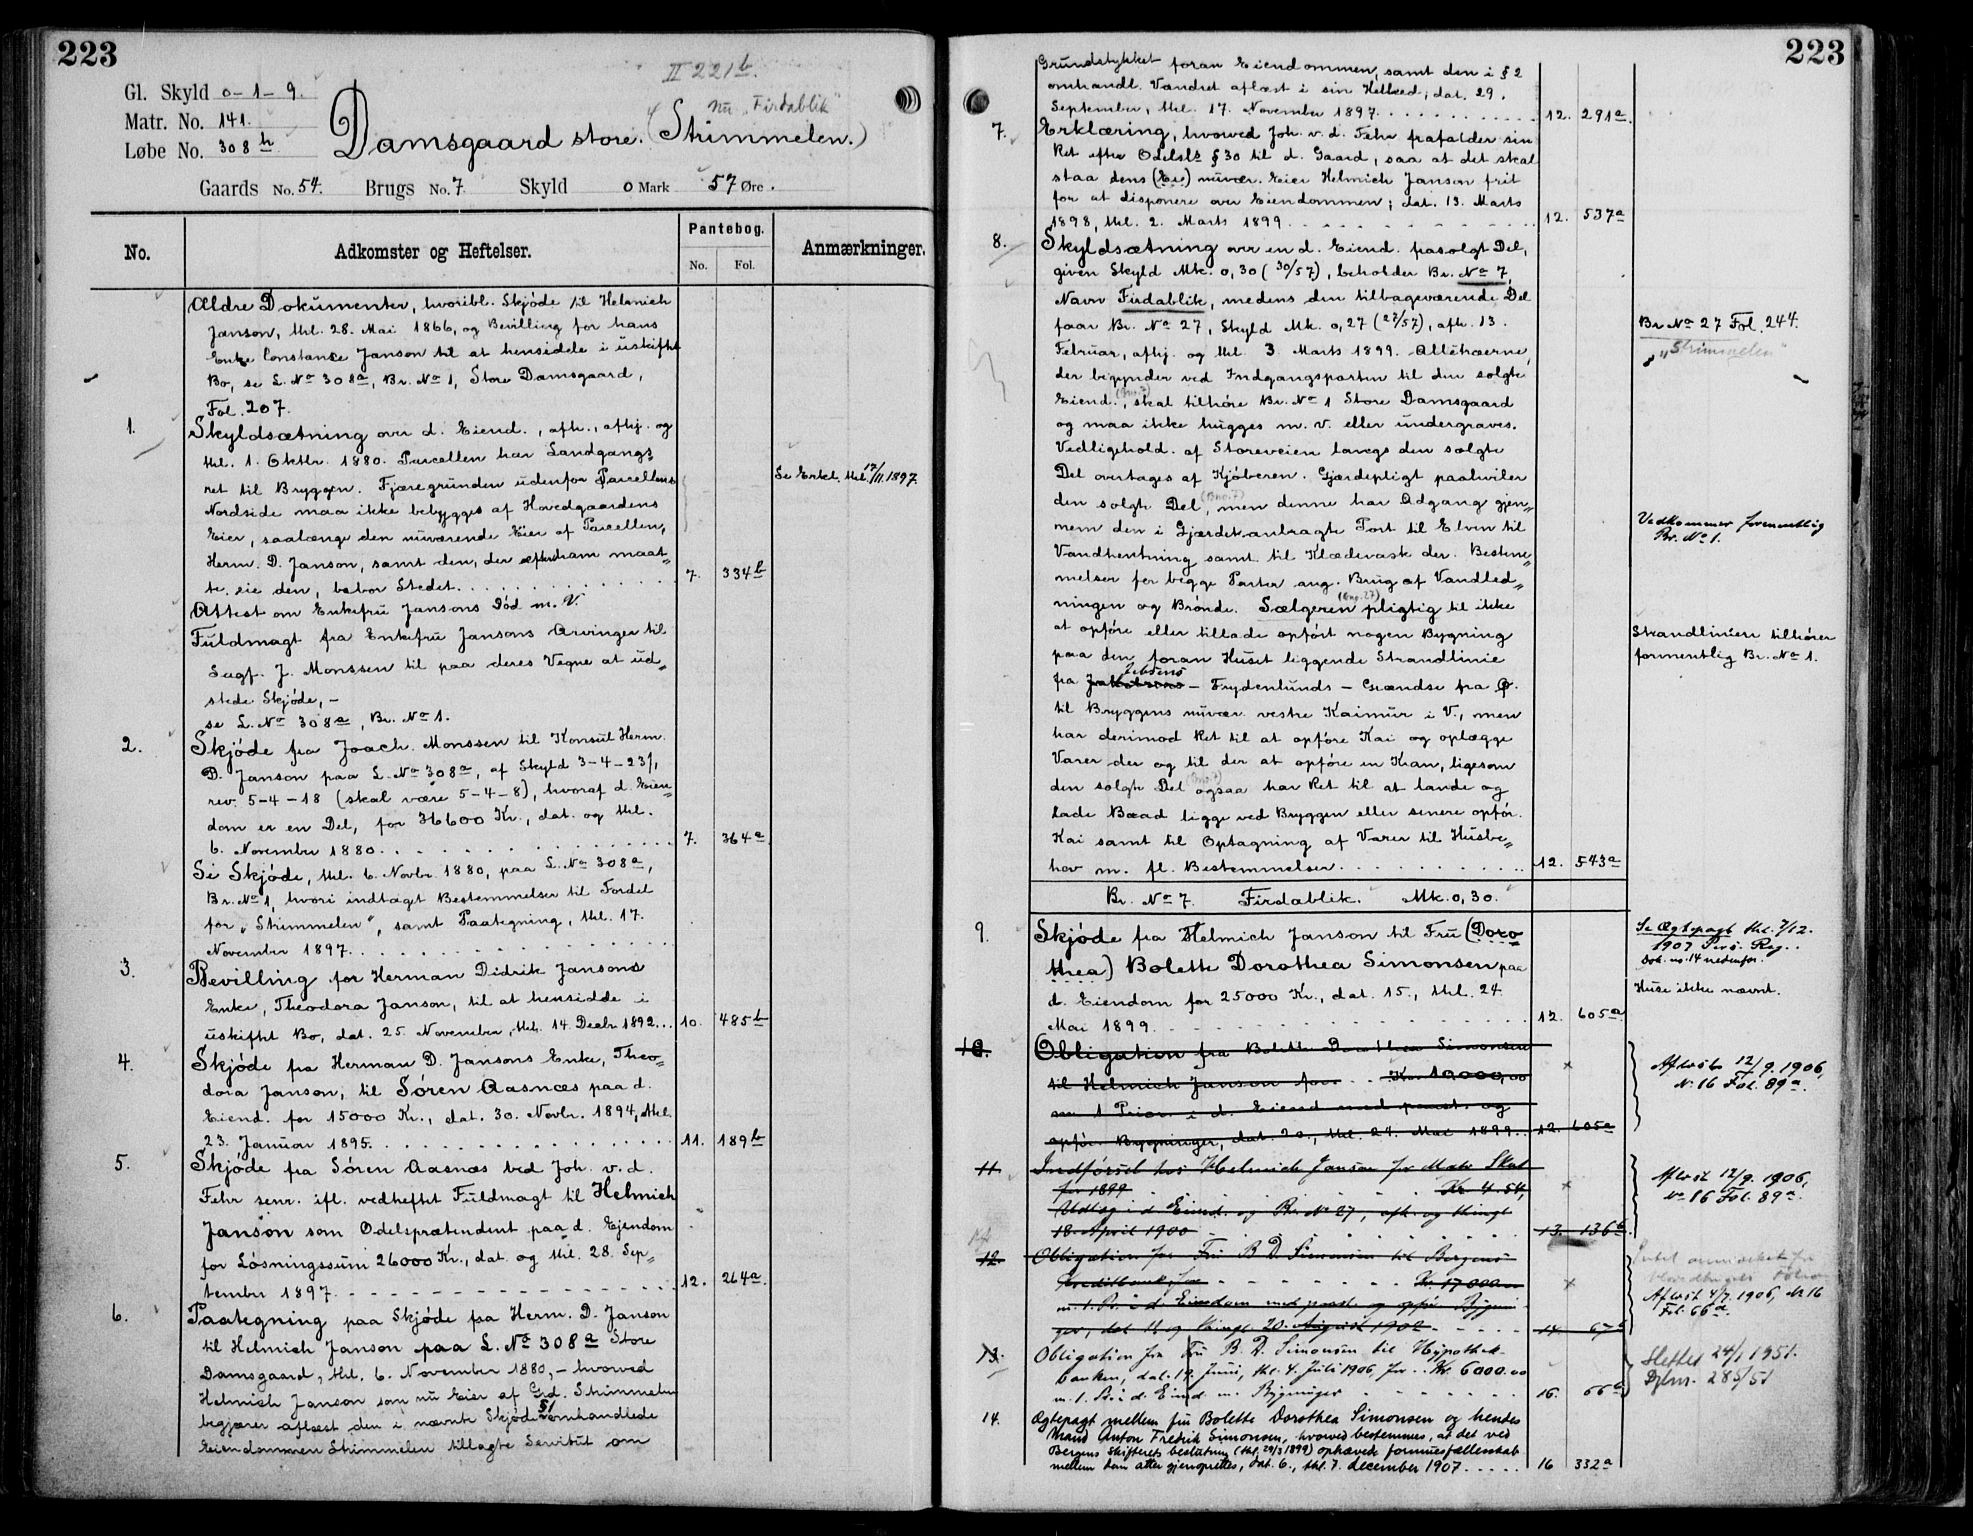 223
II 221b.
Gl. Skyld 0-1-9.
Matr. No. 141.
Løbe No. 308 h
nu "Firdablik"
Damsgaard store. (Strimmelen.)
Gaards No. 54. Brugs No. 7. Skyld 0 Mark 57 Øre.
No. Adkomster og Heftelser. Pantebog. Anmærkninger.
No. Fol.
Ældre Dokumenter, hvoribl. Skjöde til Helmich
Janson, thl. 28. Mai 1866, og Bevilling for hans
Enke Constance Janson til at hensidde i uskiftet
Bo, se L. No 308a, Br. No 1, Store Damsgaard,
Fol. 207.
1. Skyldsætning over d. Eiend., afh., afhj. og
thl. 1. Oktbr. 1880. Parcellen har Landgangs-
ret til Bryggen. Fjæregrunden udenfor Parcellens
Se Erkl. thl. 17/11. 1897.
Nordside maa ikke bebygges af Hovedgaardens
Eier, saalænge den nuværende Eier af Parcellen,
Herm. D. Janson, samt den, der efter ham maat„
te eie den, bebor Stedet. 7. 334b
Attest om Enkefru Jansons Död m. V.
Fuldmagt fra Enkefru Jansons Arvinger til
Sagf. J. Monssen til paa deres Vegne at ud„
stede Skjöde, -
se L. No 308a, Br. No 1.
2. Skjöde fra Joach. Monssen til Konsul Herm.
D. Janson paa L. No 308a, af Skyld 3-4-23/,
rev. 5-4-18 (skal være 5-4-8), hvoraf d. Eien„
dom er en Del, for 36600 Kr., dat. og thl.
6. November 1880. 7. 364a
Se Skjöde, thl. 6. Novbr. 1880, paa L. No 308a,
Br. No 1, hvori indtaget Bestemmelser til Fordel
for „Strimmelen", samt Paategning, thl. 17.
November 1897.
3. Bevilling for Herman Didrik Jansons
Enke, Theodora Janson, til at hensidde i
uskiftet Bo, dat. 25. November, thl. 14. Decbr. 1892. 10. 485b
4. Skjöde fra Herman D. Jansons Enke, Theo„
dora Janson, til Sören Aasnæs paa d.
Eiend. for 15000 Kr., dat. 30. Novbr. 1894, thl.
23. Januar 1895. 11. 189b
5. Skjöde fra Sören Aasnæs ved Joh. v. d.
Fehr senr. ifl. vedheftet Fuldmagt til Helmich
Janson som Odelsprætendent paa d. Ejendom
for Lösningssum 26000 Kr., dat. og thl. 28. Sep„
tember 1897. 12. 264a
6. Paategning paa Skjöde fra Herm. D. Janson
til Helmich Janson paa L. No 308a Store
Damsgaard, thl. 6. November 1880, - hvorved
Helmich Janson som nu Eier af Grd. Strimmelen
begjærer aflæst den i nævnte Skjödes §1 omhandlede
Eiendommen Strimmelen tillagte Servitut om
223
Grundstykket foran Eiendommen, samt den i §2
omhandl. Vandret aflæst i sin Helhed; dat. 29.
September, thl. 17. November 1897. 12. 291a
7. Erklæring, hvorved Joh. v. d. Fehr frafalder sin
Ret efter Odelsl. §30 til d. Gaard, saa at det skal
staa dens (Eie) nuvær. Eier Helmich Janson frit
for at disponere over Eiendommen; dat. 13. Marts
1898, thl. 2. Marts 1899. 12. 537a
8. Skyldsætning over en d. Eiend. frasolgt Del,
given Skyld Mk. 0,30 (30/57), beholder Br. No 7
Navn Firdablik, medens den tilbageværende Del
faar Br. No 27, Skyld Mk. 0,27 (27/57), afh. 13. Br No 27 Fol. 244.
Februar, afhj. og thl. 3. Marts 1899. Alletræerne, "Strimmelen"
der begynder ved Indgangsporten til den solgte
Eiend. (Bno.7), skal tilhöre Br. No 1 Store Damsgaard
og maa ikke hugges m. v. eller undergraves.
Vedligehold. af Storeveien langs den solgte
Del overtages af Kjöberen. Gjærdepligt paahviler
den solgte Del (Bno.7), men denne har Adgang gjen„
nem den i Gjærdet anbragte Port til Elven til Vedkommer formentlig
Br. No 1.
Vandhentning samt til Klædevask der. Bestem„
melser for begge Parter ang. Brug af Vandled„
ningen og Brönde. Sælgeren (Bno.27) pligtig til ikke
at opföre eller tillade opfört nogen Bygning Strandlinien tilhörer
paa den foran Huset liggende Strandlinie formentlig Br. No 1.
fra Jebsens - Frydenlunds - Grændse fra Ø.
til Bryggens nuvær. vestre Kaimur i V., men
har derimod Ret til at opföre Kai og oplægge
Varer der og til der at opföre en Kran, ligesom
den solgte Del (Bno.7) ogsaa har Ret til at lande og
lade Baad ligge ved Bryggen eller senere opför.
Kai samt til Optagning af Varer til Husbe„
hov m. fl. Bestemmelser. 12. 543a
Br. No 7. Firdablik. Mk. 0,30.
9. Skjöde fra Helmich Janson til Fru (Doro- Se Ægtepagt thl. 7/12.
thea) Bolette Dorothea Simonsen paa 1907 Pers. Reg..
Dok. no. 14 nedenfor.
d. Eiendom for 25000 Kr., dat. 15., thl. 24. Huse ikke nævnt.
Mai 1899. 12. 605a
10. Obligation fra Bolette Dorothea Simonsen
til Helmich Janson for Kr. 10,000,00 Aflyst 12/9. 1906,
N. 16 Fol. 89a.
m. 1 Prior. i d. Eiend med paast. og
opför. Bygninger, dat. 20., thl. 24. Mai 1899. 12. 605a
11. Indförsel hos Helmich Janson for Matr. Skat
for 1899 Kr. 4.54, Aflyst 12/9. 1906,
No 16 Fol. 89a.
Udlæg i d Eiend. og Br. No 27, afh. og thingl
18. April 1900 13. 136b
12. Obligation fra Fru B D. Simonsen til Bergens
Kreditbank for Kr. 17 000.00
m. 1. Pr. i d. Eiendom med paast. og opför. Bygnin-
ger, dat. 18 og thingl 20. August 1902 14. 67
Aflyst 4/7. 1906, No 16
Fol. 66a.
13. Obligation fra Fru B. D. Simonsen til Hypothek-
banken, dat. 19. Juni, thl. 4. Juli 1906, for Kr. 6000.00
m. 1. Pr. i d. Eiend. m. Bygninger 16. 66a
Slettet 24/1 1951.
Dglnr. 285/51
14. Ægtepagt mellem fru Bolette Dorothea Simonsen og hendes
Mand Anton Fredrik Simonsen, hvorved bestemmes, at det ved
Bergens Skifterets beslutning (thl. 29/3 1899) ophævede formuesfællesskab
mellem dem atter gjenoprettes, dat. 6., thl. 7. december 1907. 16 332a